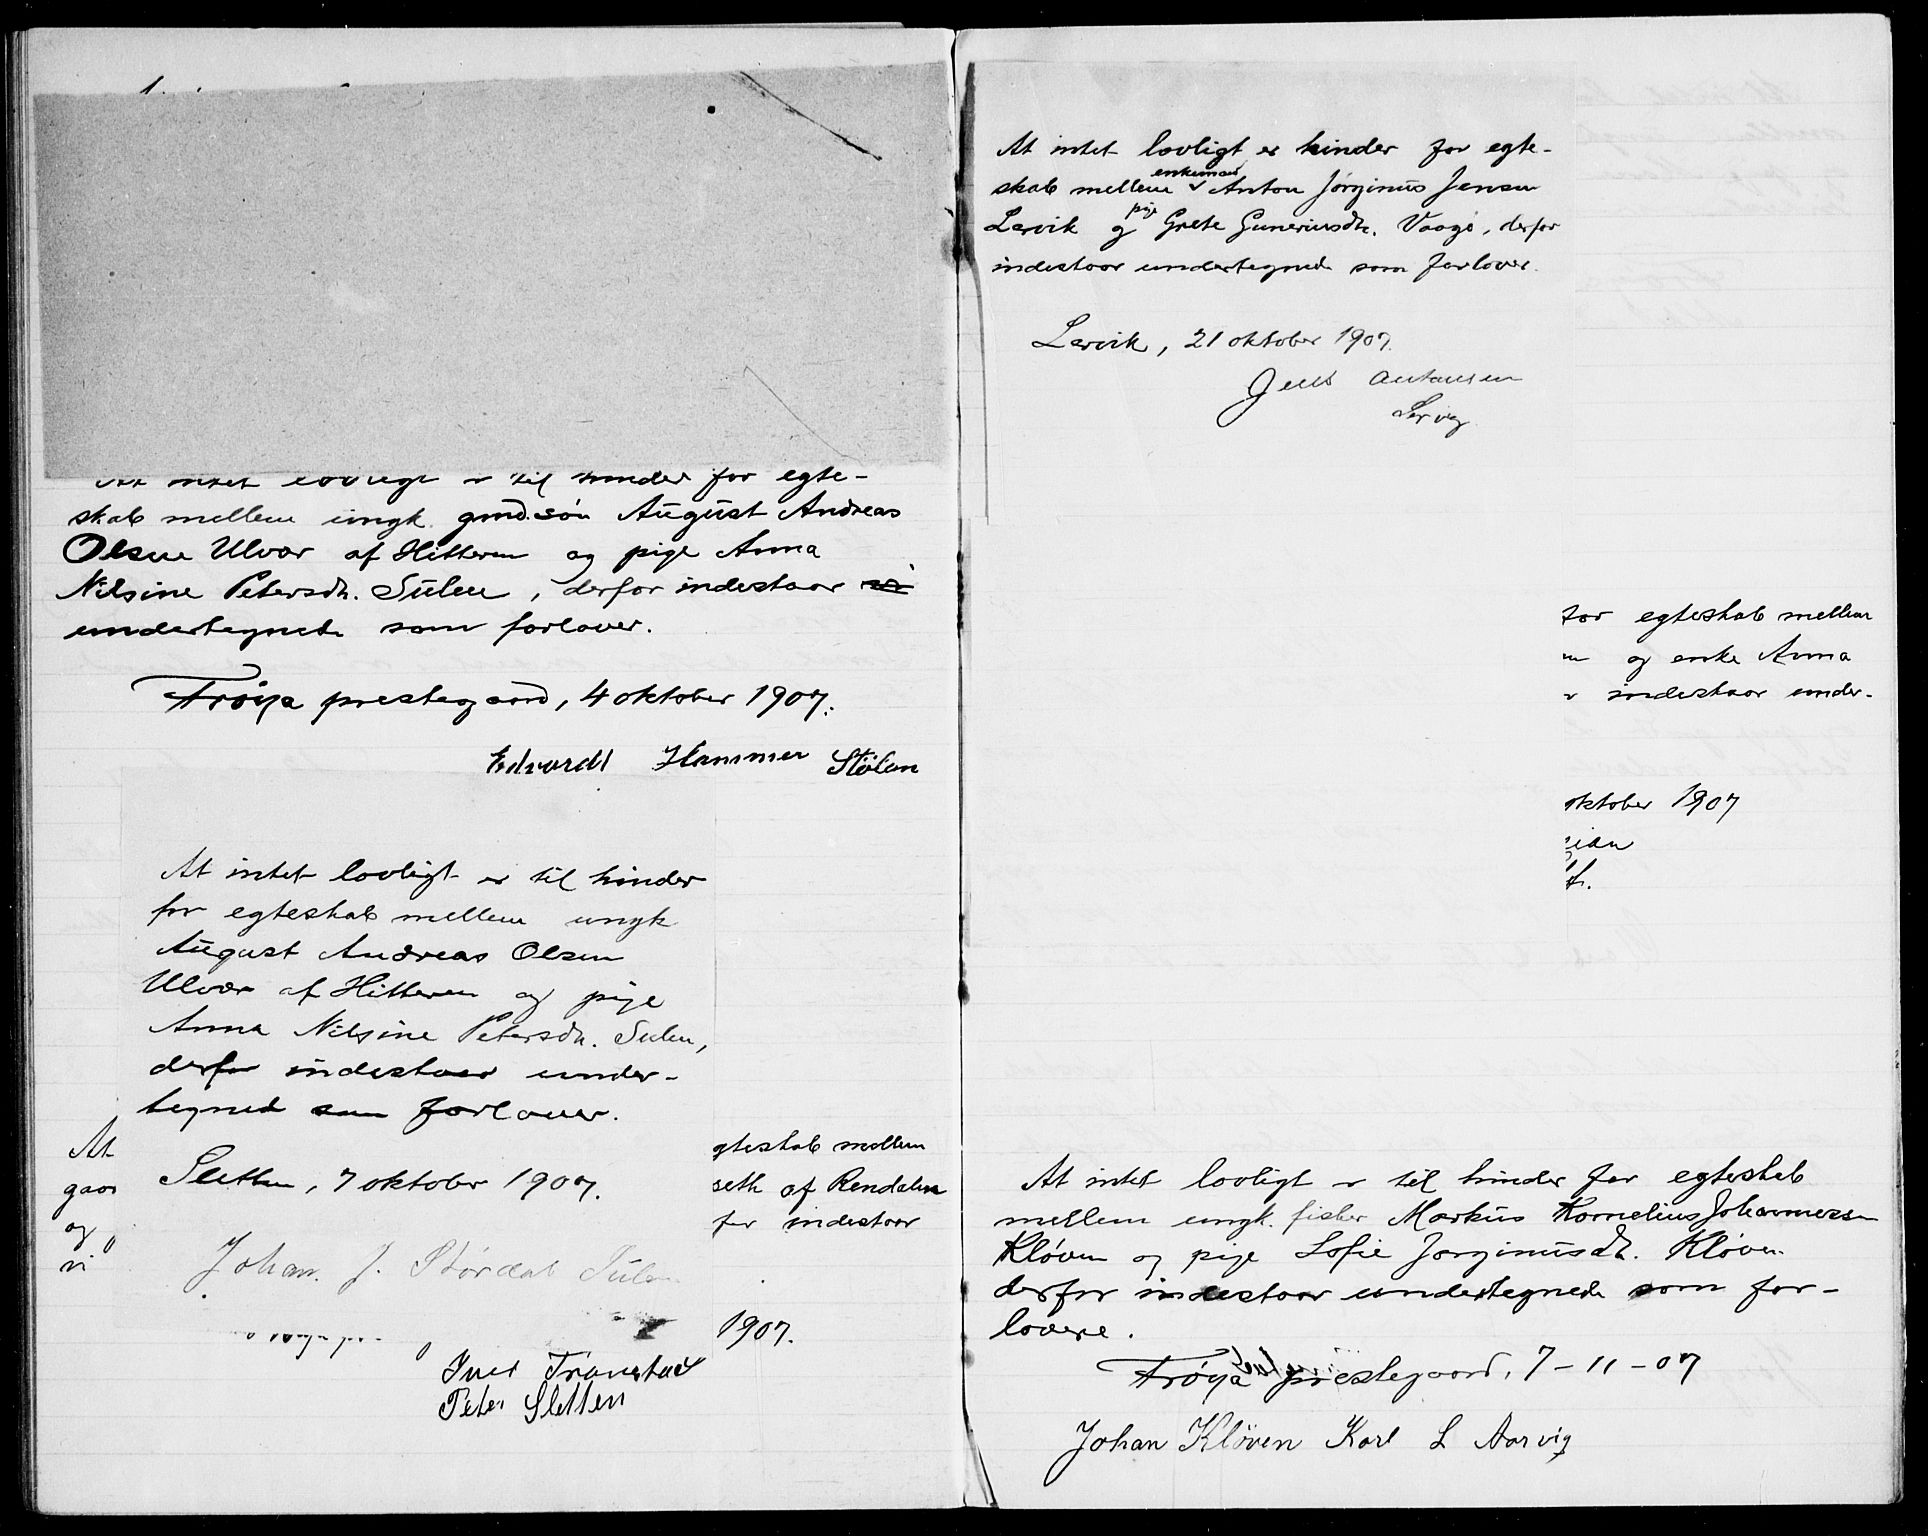 At intet lovligt er til hinder for egte-
skab mellem ungk. gmd.søn August Andreas
Olsen Ulvær af Hitteren og pige Anna
Nilsine Petersdtr. Sulen, derfor indestaar vi
undertegnede som forlover.
Frøya prestegaard, 4 oktober 1907.
Edvardt Hammer Stølan
At intet lovligt er til hinder
for egteskab mellem ungk
August Andreas Olsen
Ulvær af Hitteren og pige
Anna Nilsine Petersdtr. Sulen,
derfor indestaar under-
tegned som forlover.
Sletten, 7 oktober 1907.
Johan. J. Størdal Sulen
At
gaar
og
vi
gteskab mellem
seth af Rendalen
for indestaar
1907.
Peter Sletten
At intet lovligt er hinder for egte-
skab mellem enkemand Anton Jørginus Jensen
Lervik og pige Grete Guneriusdtr. Vaagø, derfor
indestaar undertegnede som forlover.
Lervik, 21 oktober 1907.
Jens Antonsen
Lervig
for egteskab mellem
og enke Anna
r indestaar under-
oktober 1907
At intet lovligt er til hinder for egteskab
mellem ungk. fisker Markus Kornelius Johannessen
Kløven og pige Sofie Jørginusdt. Kløven
derfor indestaar undertegnede som for-
lovere.
Frøya prestegaard, 7-11-07
Johan Kløven Karl L Aarvig